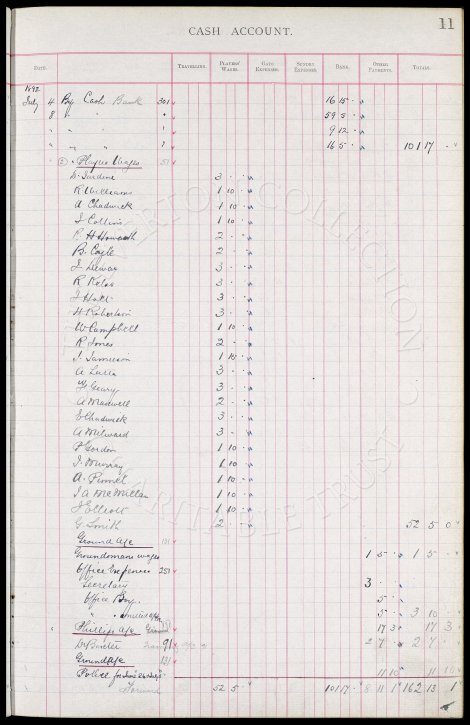 11
CASH ACCOUNT.
DATE. TRAVELLING. PLAYERS' WAGES. GATE EXPENSES. SUNDRY EXPENSES. BANK. OTHER PAYMENTS. TOTALS.
1892
July 4 By Cash Bank 301 16 15 -
8 " " " 59 5 -
" " " 9 12 -
" " " 16 5 - 101 17 -
" Players Wages 51
D. Jardine 3 - -
R Williams 1 10 -
A Chadwick 1 10 -
J Collins 1 10 -
R H Howarth 2 - -
B. Coyle 2 - -
J Dewar 3 - -
R Kelso 3 - -
J Holt 3 - -
H Robertson 3 - -
W Campbell 1 10 -
R Jones 2 -
J. Jamieson 1 10 -
A Latta 3 - -
F Geary 3 - -
A Maxwell 2 - -
E Chadwick 3 - -
A Milward 3 -
P Gordon 1 10
J. Murray 1 10
A. Pinnel 1 10
J A McMillan 1 10
J Elliott 1 10
G Smith 2 52 5 0
Ground a/c 131
Groundsmans wages 1 5 - 1 5 -
Office Expenses 251
Secretary 3 -
Office Boy 5 -
" 5 - 3 10 -
Phillips a/c 17 3 17 3
Dr Baxter 91 2 7 - 2 7 -
Ground a/c 131
Police 11 10 11 10
Forward 52 5 - 101 17 - 8 11 1 162 13 1
EVERTON COLLECTION CHARITABLE TRUST